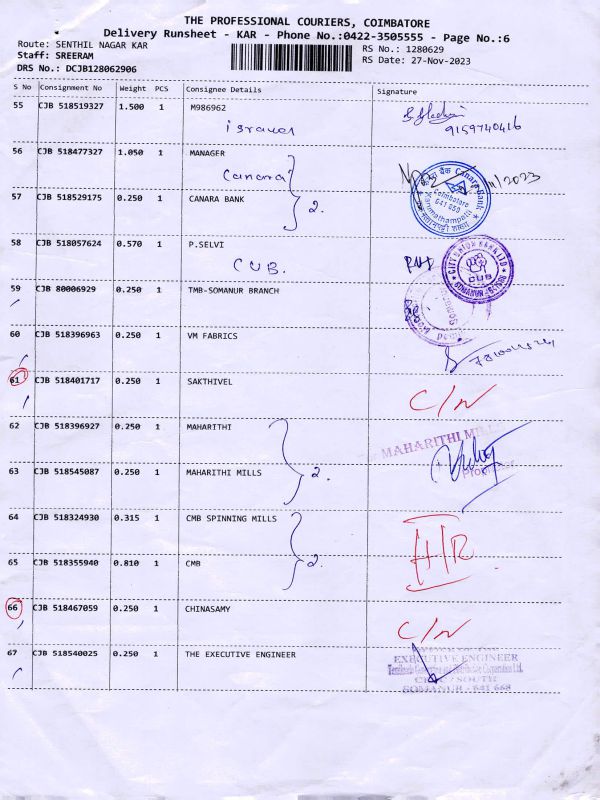 THE PROFESSIONAL COURIERS, COIMBATORE
Delivery Runsheet - KAR - Phone No.:0422-3505555 - Page No.:6
Route: SENTHIL NAGAR KAR
RS No.: 1280629
Staff: SREERAM
RS Date: 27-Nov-2023
DRS No.: DCJB128062906
S No Consignment No Weight PCS Consignee Details Signature
55 CJB 518519327 1.500 1 M986962
9159740416
56 CJB 518477327 1.050 1 MANAGER
Canara
/2023
57 CJB 518529175 0.250 1 CANARA BANK
2.
Canara Bank
Coimbatore
641 659
Karumathampatti
58 CJB 518057624 0.570 1 P.SELVI
CUB.
CITY UNION BANK LTD
CUB
59 CJB 80006929 0.250 1 TMB-SOMANUR BRANCH
60 CJB 518396963 0.250 1 VM FABRICS
61 CJB 518401717 0.250 1 SAKTHIVEL
C/N
62 CJB 518396927 0.250 1 MAHARITHI
MAHARITHI MILLS
63 CJB 518545087 0.250 1 MAHARITHI MILLS
2.
Proprietor
64 CJB 518324930 0.315 1 CMB SPINNING MILLS
H/R
65 CJB 518355940 0.810 1 CMB
2.
66 CJB 518467059 0.250 1 CHINASAMY
C/N
67 CJB 518540025 0.250 1 THE EXECUTIVE ENGINEER
EXECUTIVE ENGINEER
SOMANUR - 641 668